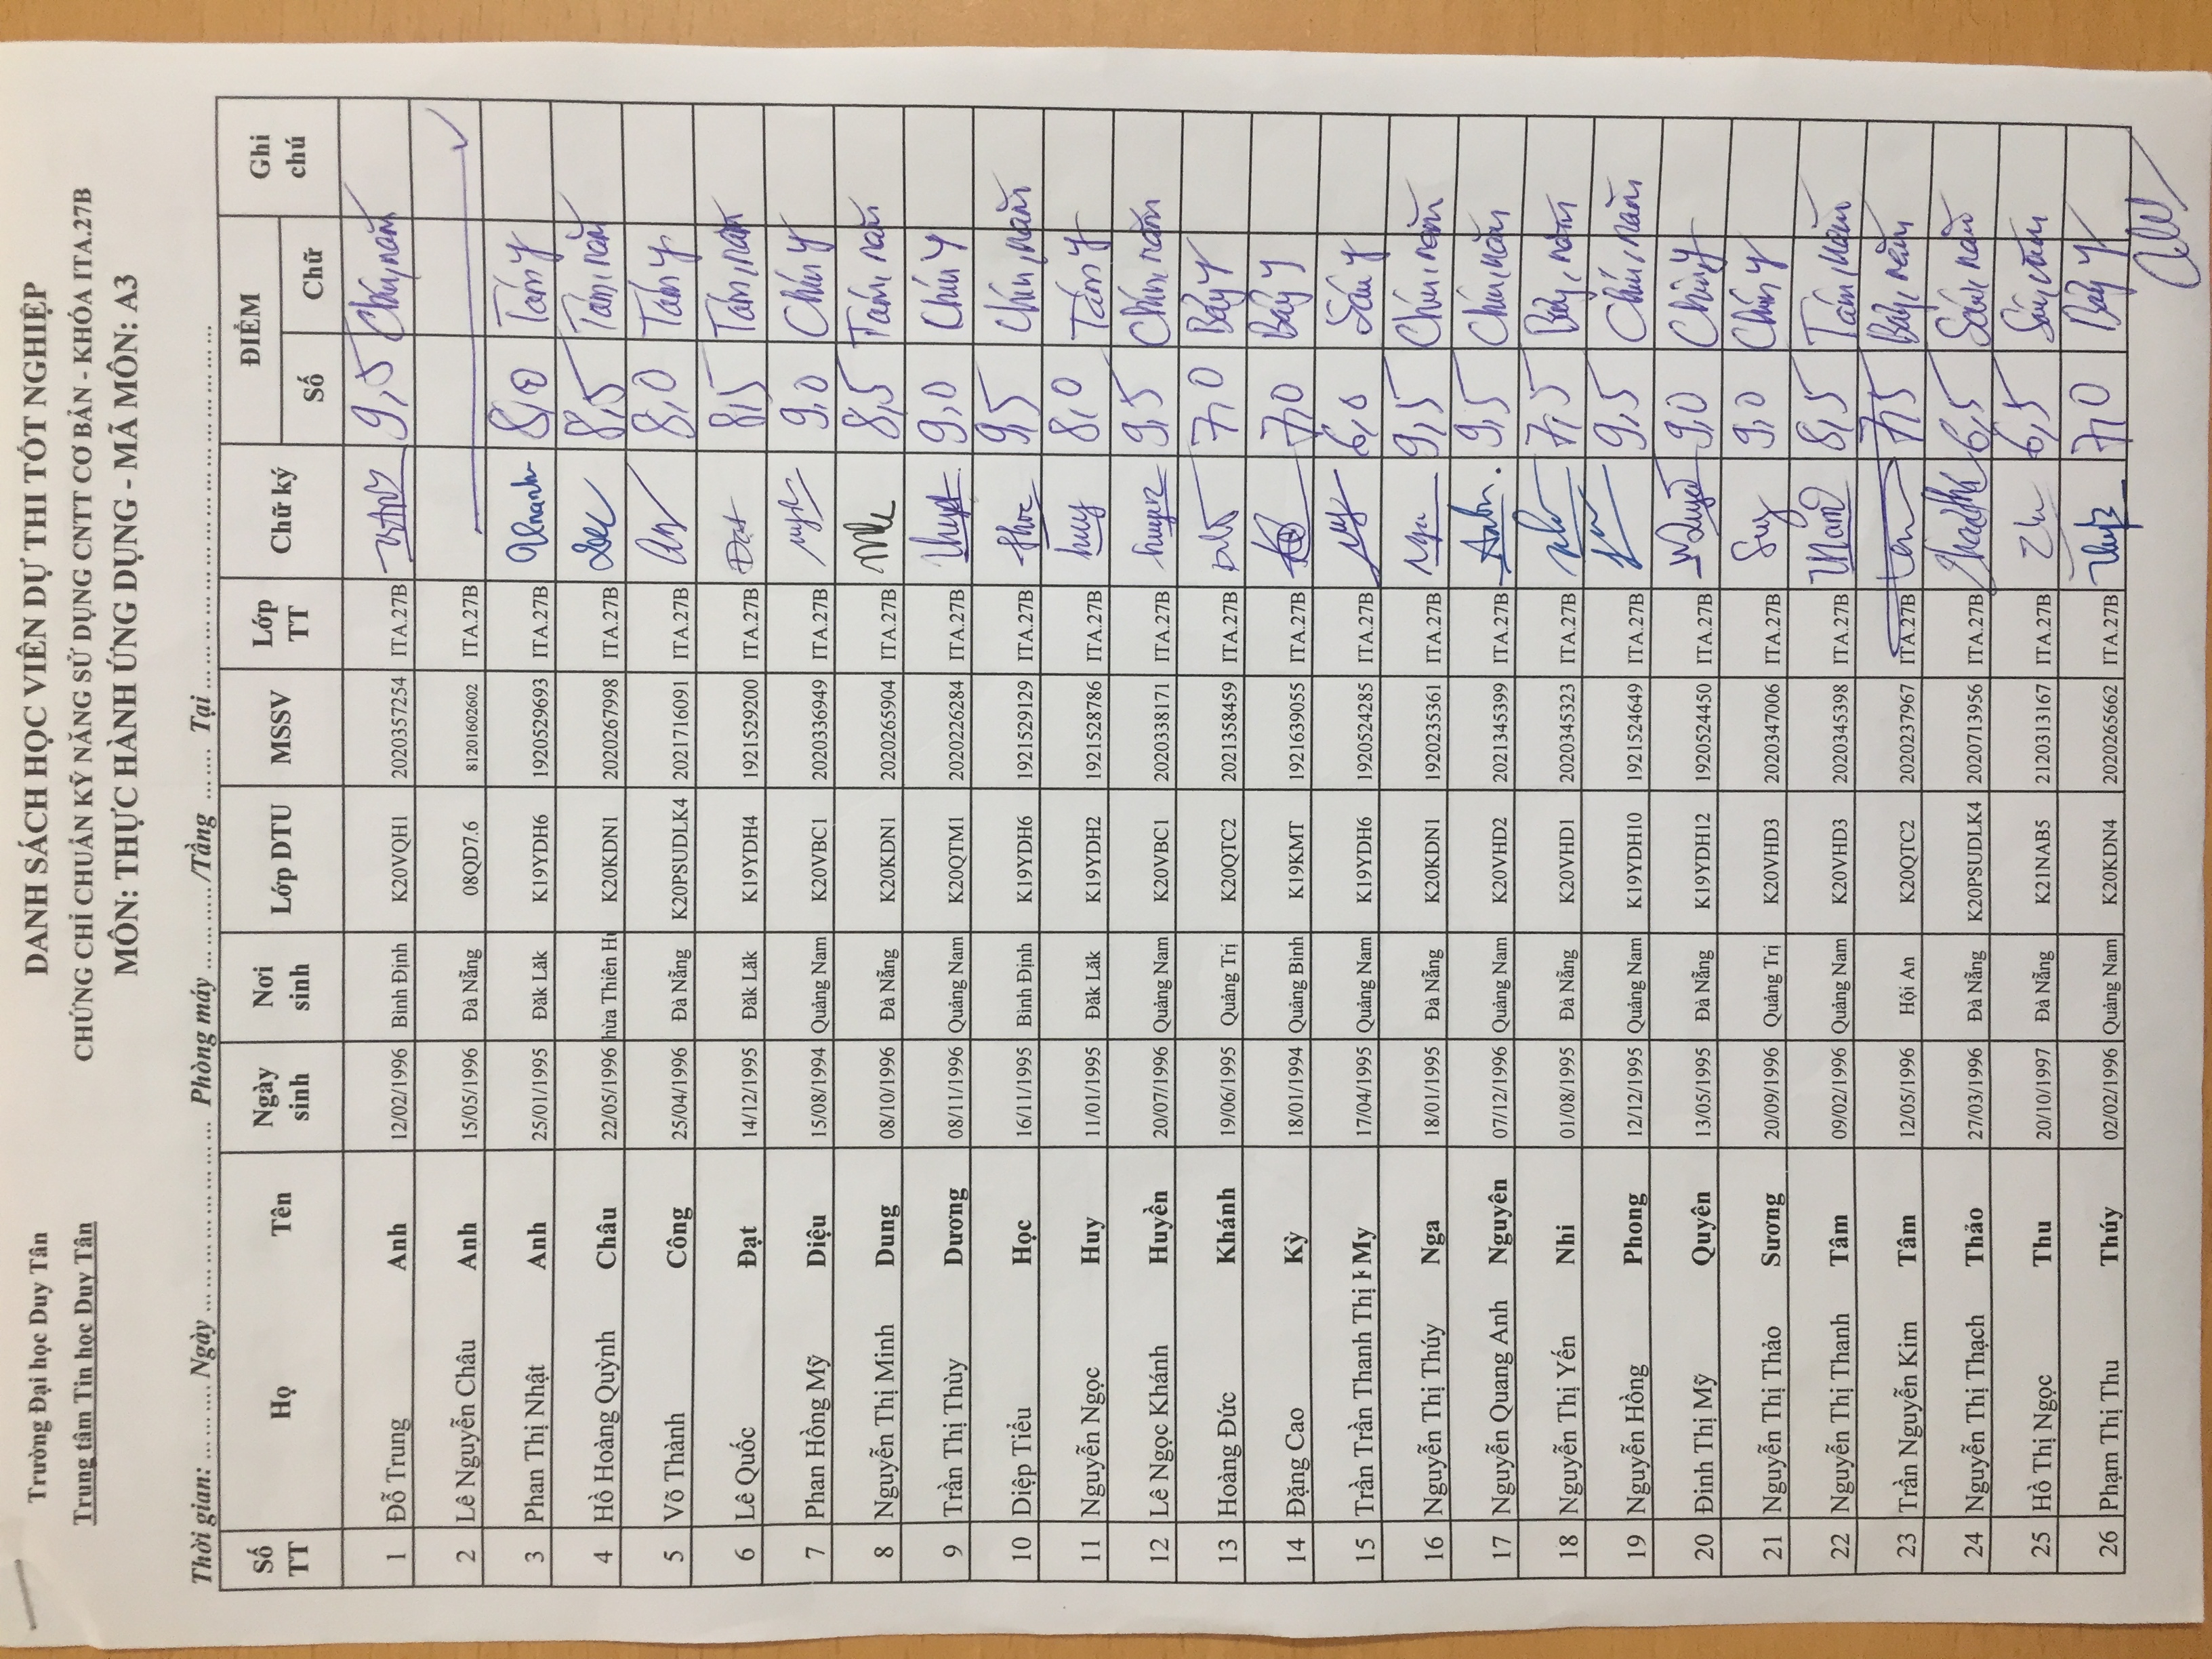 Trường Đại học Duy Tân
Trung tâm Tin học Duy Tân
DANH SÁCH HỌC VIÊN DỰ THI TỐT NGHIỆP
CHỨNG CHỈ CHUẨN KỸ NĂNG SỬ DỤNG CNTT CƠ BẢN - KHÓA ITA.27B
MÔN: THỰC HÀNH ỨNG DỤNG - MÃ MÔN: A3
Thời gian: ... ... ... Ngày ... ... ... ... ... ... ... Phòng máy ... ... ... ... /Tầng ... ... ... Tại ... ... ... ... ... ... ... ... ... ...
Số TT Họ Tên Ngày sinh Nơi sinh Lớp DTU MSSV Lớp TT Chữ ký ĐIỂM Số Chữ Ghi chú
1 Đỗ Trung Anh 12/02/1996 Bình Định K20VQH1 2020357254 ITA.27B 9,5 Chín, năm
2 Lê Nguyễn Châu Anh 15/05/1996 Đà Nẵng 08QD7.6 81201602602 ITA.27B
3 Phan Thị Nhật Anh 25/01/1995 Đăk Lăk K19YDH6 1920529693 ITA.27B 8,0 Tám y
4 Hồ Hoàng Quỳnh Châu 22/05/1996 hừa Thiên H K20KDN1 2020267998 ITA.27B 8,5 Tám, năm
5 Võ Thành Công 25/04/1996 Đà Nẵng K20PSUDLK4 2021716091 ITA.27B 8,0 Tám y
6 Lê Quốc Đạt 14/12/1995 Đăk Lăk K19YDH4 1921529200 ITA.27B Đạt 8,5 Tám, năm
7 Phan Hồng Mỹ Diệu 15/08/1994 Quảng Nam K20VBC1 2020336949 ITA.27B 9,0 Chín y
8 Nguyễn Thị Minh Dung 08/10/1996 Đà Nẵng K20KDN1 2020265904 ITA.27B 8,5 Tám, năm
9 Trần Thị Thùy Dương 08/11/1996 Quảng Nam K20QTM1 2020226284 ITA.27B 9,0 Chín y
10 Diệp Tiểu Học 16/11/1995 Bình Định K19YDH6 1921529129 ITA.27B 9,5 Chín, năm
11 Nguyễn Ngọc Huy 11/01/1995 Đăk Lăk K19YDH2 1921528786 ITA.27B huy 8,0 Tám y
12 Lê Ngọc Khánh Huyền 20/07/1996 Quảng Nam K20VBC1 2020338171 ITA.27B 9,5 Chín, năm
13 Hoàng Đức Khánh 19/06/1995 Quảng Trị K20QTC2 2021358459 ITA.27B 7,0 Bảy y
14 Đặng Cao Kỳ 18/01/1994 Quảng Bình K19KMT 1921639055 ITA.27B 7,0 Bảy y
15 Trần Trần Thanh Thị My 17/04/1995 Quảng Nam K19YDH6 1920524285 ITA.27B 6,0 Sáu y
16 Nguyễn Thị Thúy Nga 18/01/1995 Đà Nẵng K20KDN1 1920235361 ITA.27B Nga 9,5 Chín, năm
17 Nguyễn Quang Anh Nguyên 07/12/1996 Quảng Nam K20VHD2 2021345399 ITA.27B 9,5 Chín, năm
18 Nguyễn Thị Yến Nhi 01/08/1995 Đà Nẵng K20VHD1 2020345323 ITA.27B 7,5 Bảy, năm
19 Nguyễn Hồng Phong 12/12/1995 Quảng Nam K19YDH10 1921524649 ITA.27B 9,5 Chín, năm
20 Đinh Thị Mỹ Quyên 13/05/1995 Đà Nẵng K19YDH12 1920524450 ITA.27B 9,0 Chín y
21 Nguyễn Thị Thảo Sương 20/09/1996 Quảng Trị K20VHD3 2020347006 ITA.27B 9,0 Chín y
22 Nguyễn Thị Thanh Tâm 09/02/1996 Quảng Nam K20VHD3 2020345398 ITA.27B 8,5 Tám, năm
23 Trần Nguyễn Kim Tâm 12/05/1996 Hội An K20QTC2 2020237967 ITA.27B 7,5 Bảy, năm
24 Nguyễn Thị Thạch Thảo 27/03/1996 Đà Nẵng K20PSUDLK4 2020713956 ITA.27B 6,5 Sáu, năm
25 Hồ Thị Ngọc Thu 20/10/1997 Đà Nẵng K21NAB5 2120313167 ITA.27B 6,5 Sáu, năm
26 Phạm Thị Thu Thúy 02/02/1996 Quảng Nam K20KDN4 2020265662 ITA.27B 7,0 Bảy y